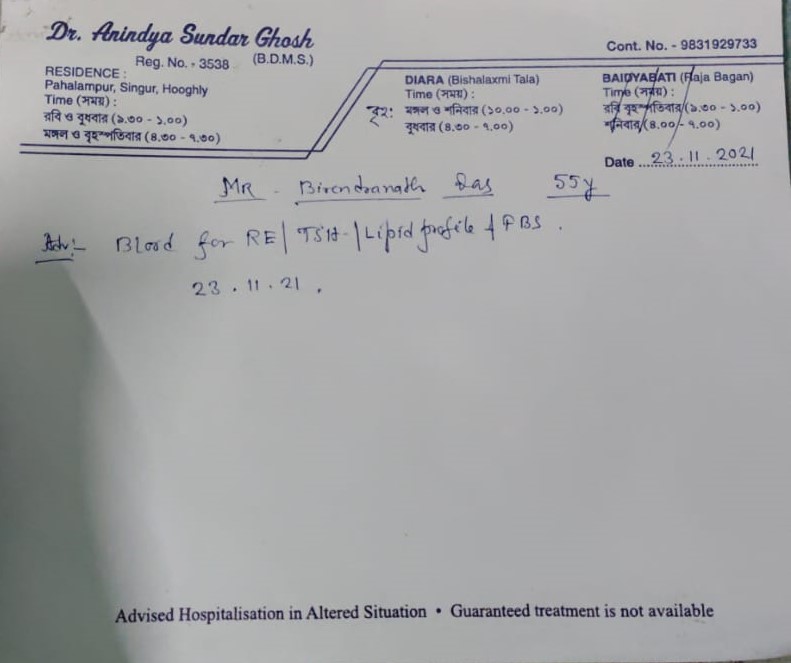 Dr. Anindya Sundar Ghosh
Reg. No. - 3538 (B.D.M.S.)
RESIDENCE :
Pahalampur, Singur, Hooghly
Time (সময়) :
রবি ও বুধবার (৯.৩০ - ১.০০)
মঙ্গল ও বৃহস্পতিবার (৪.৩০ - ৭.৩০)
Cont. No. - 9831929733
DIARA (Bishalaxmi Tala)
Time (সময়) :
বৃহ: মঙ্গল ও শনিবার (১০.০০ - ১.০০)
বুধবার (৪.০০ - ৭.০০)
BAIDYABATI (Raja Bagan)
Time (সময়) :
রবি বৃহস্পতিবার (৯.৩০ - ১.০০)
শনিবার (৪.০০ - ৭.০০)
Date 23.11.2021
MR. Birendranath Das 55y
Adv:- Blood for RE/ TSH/ Lipid profile & FBS.
23.11.21.
Advised Hospitalisation in Altered Situation • Guaranteed treatment is not available